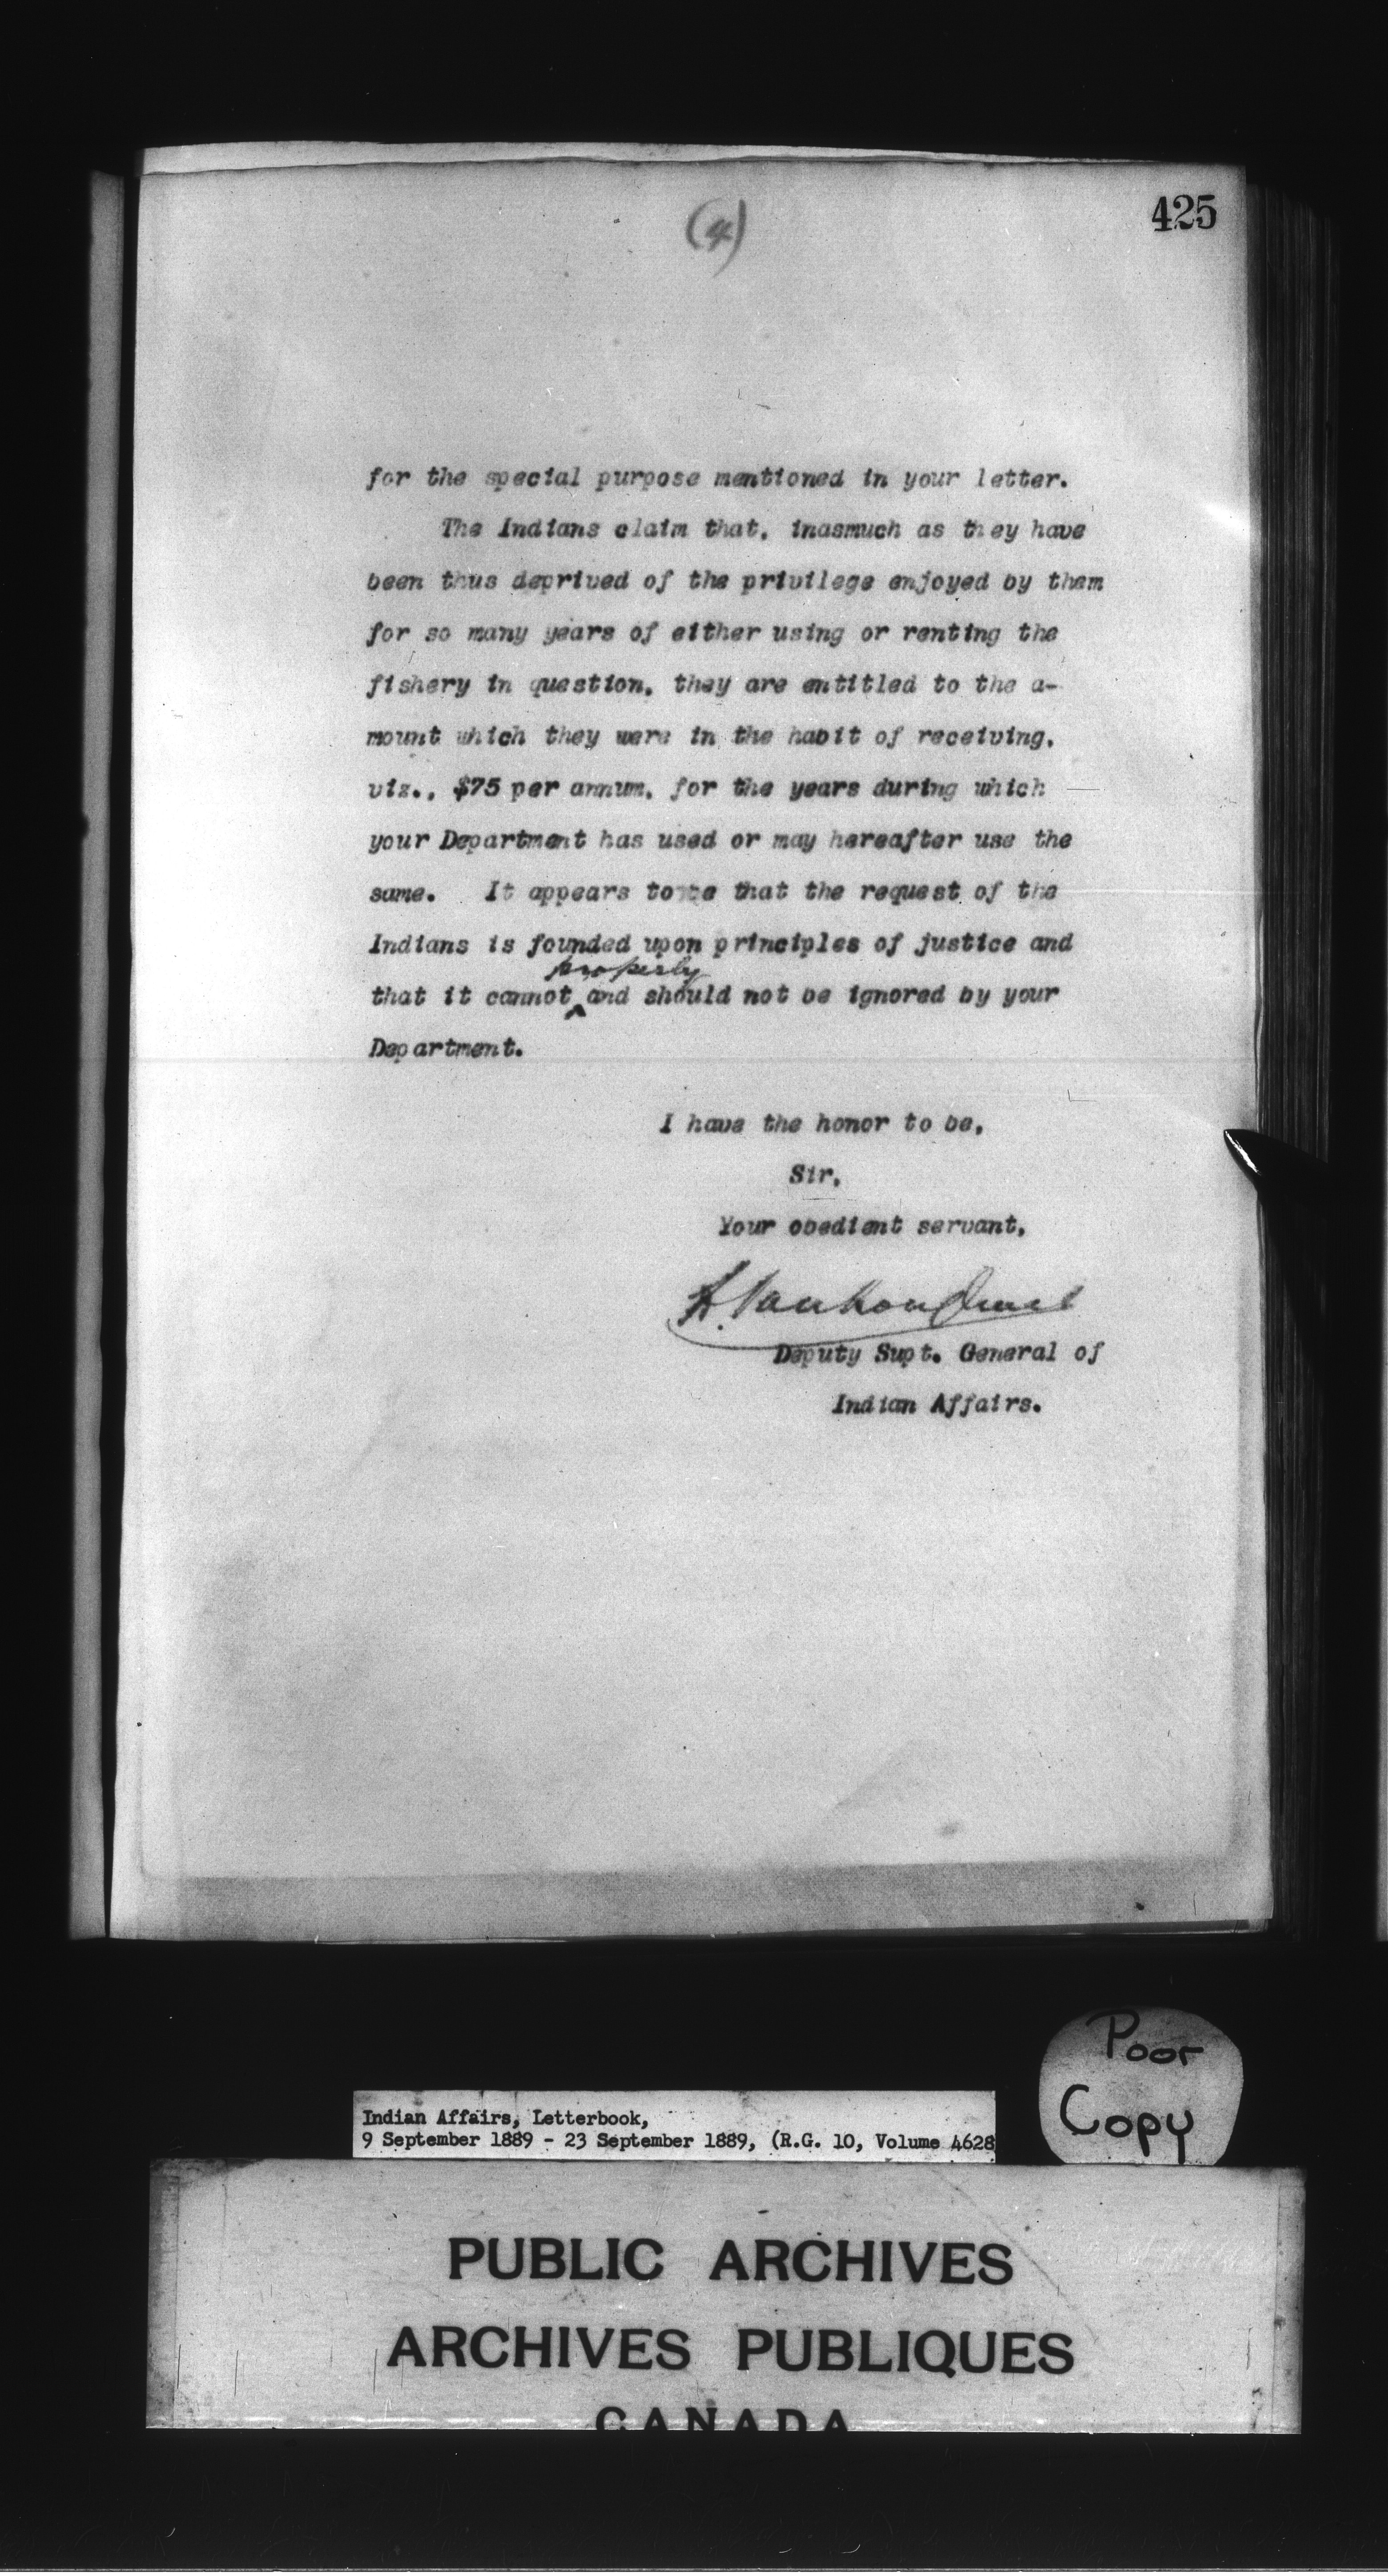 (4)
425
for the special purpose mentioned in your letter.
The Indians claim that, inasmuch as they have
been thus deprived of the privilege enjoyed by them
for so many years of either using or renting the
fishery in question, they are entitled to the a-
mount which they were in the habit of receiving,
viz., $75 per annum, for the years during which
your Department has used or may hereafter use the
same. It appears to me that the request of the
Indians is founded upon principles of justice and
properly
that it cannot ^ and should not be ignored by your
Department.
I have the honor to be,
Sir,
Your obedient servant,
L. Vankoughnet
Deputy Supt. General of
Indian Affairs.
Poor
Copy
Indian Affairs, Letterbook,
9 September 1889 - 23 September 1889, (R.G. 10, Volume 4628
PUBLIC ARCHIVES
ARCHIVES PUBLIQUES
CANADA